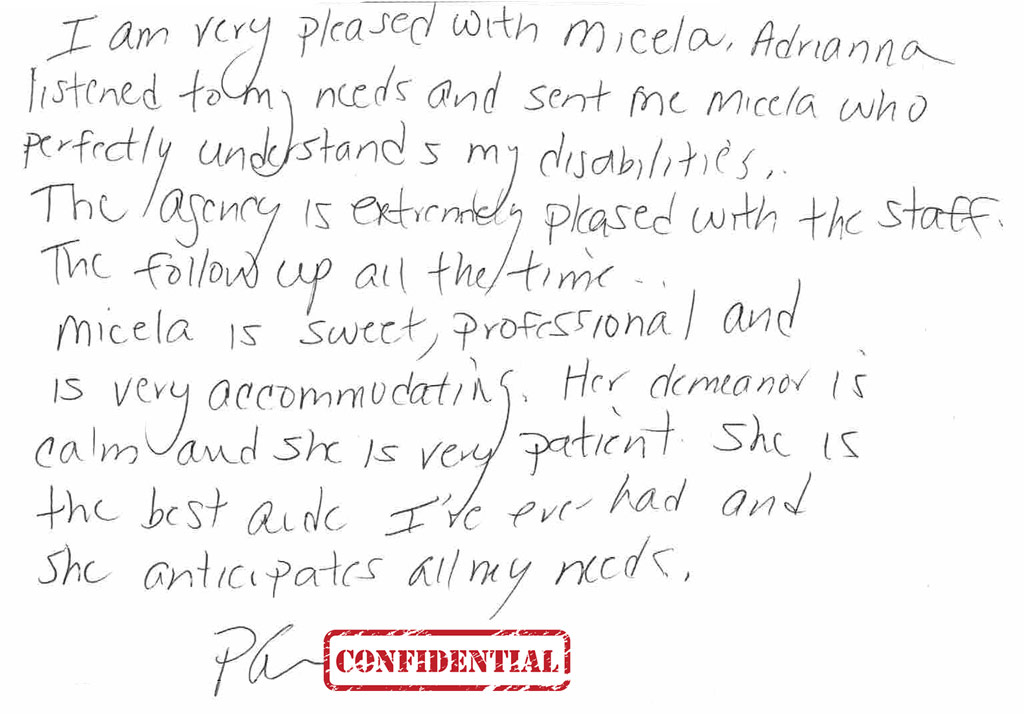 I am very pleased with Micela. Adrianna
listened to my needs and sent me Micela who
perfectly understands my disabilities..
The agency is extremely pleased with the staff.
The follow up all the time...
Micela is sweet, professional and
is very accommodating. Her demeanor is
calm and she is very patient. She is
the best aide I've ever had and
she anticipates all my needs.
CONFIDENTIAL